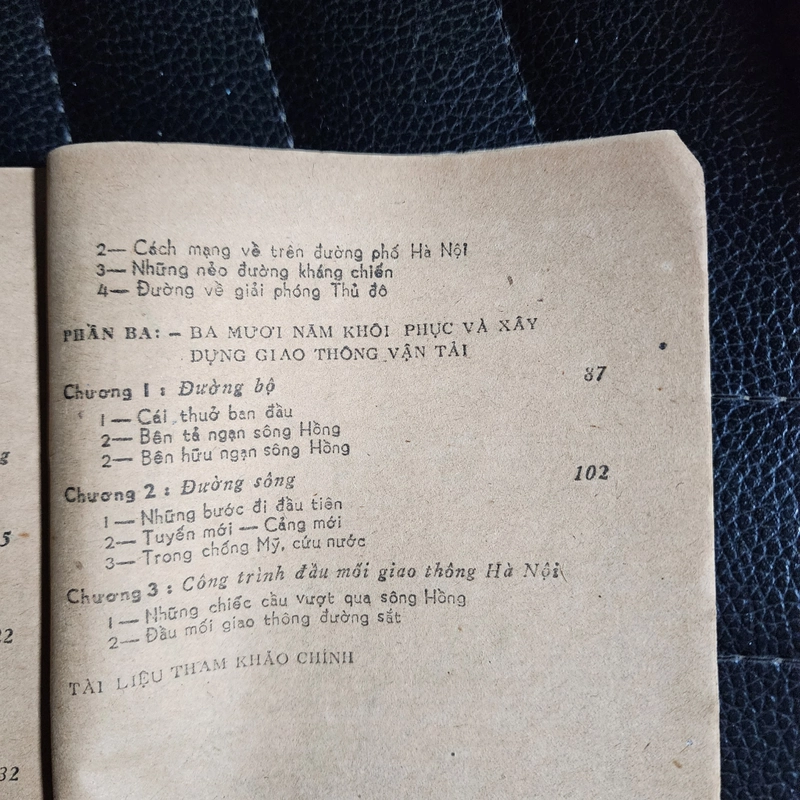 2— Cách mạng về trên đường phố Hà Nội
3— Những nẻo đường kháng chiến
4— Đường về giải phóng Thủ đô
PHẦN BA: – BA MƯƠI NĂM KHÔI PHỤC VÀ XÂY
DỰNG GIAO THÔNG VẬN TẢI
Chương 1 : Đường bộ 87
1— Cái thuở ban đầu
2— Bên tả ngạn sông Hồng
2— Bên hữu ngạn sông Hồng
Chương 2 : Đường sông 102
1— Những bước đi đầu tiên
2— Tuyến mới — Cảng mới
3— Trong chống Mỹ, cứu nước
Chương 3 : Công trình đầu mối giao thông Hà Nội
1— Những chiếc cầu vượt qua sông Hồng
2— Đầu mối giao thông đường sắt
TÀI LIỆU THAM KHẢO CHÍNH